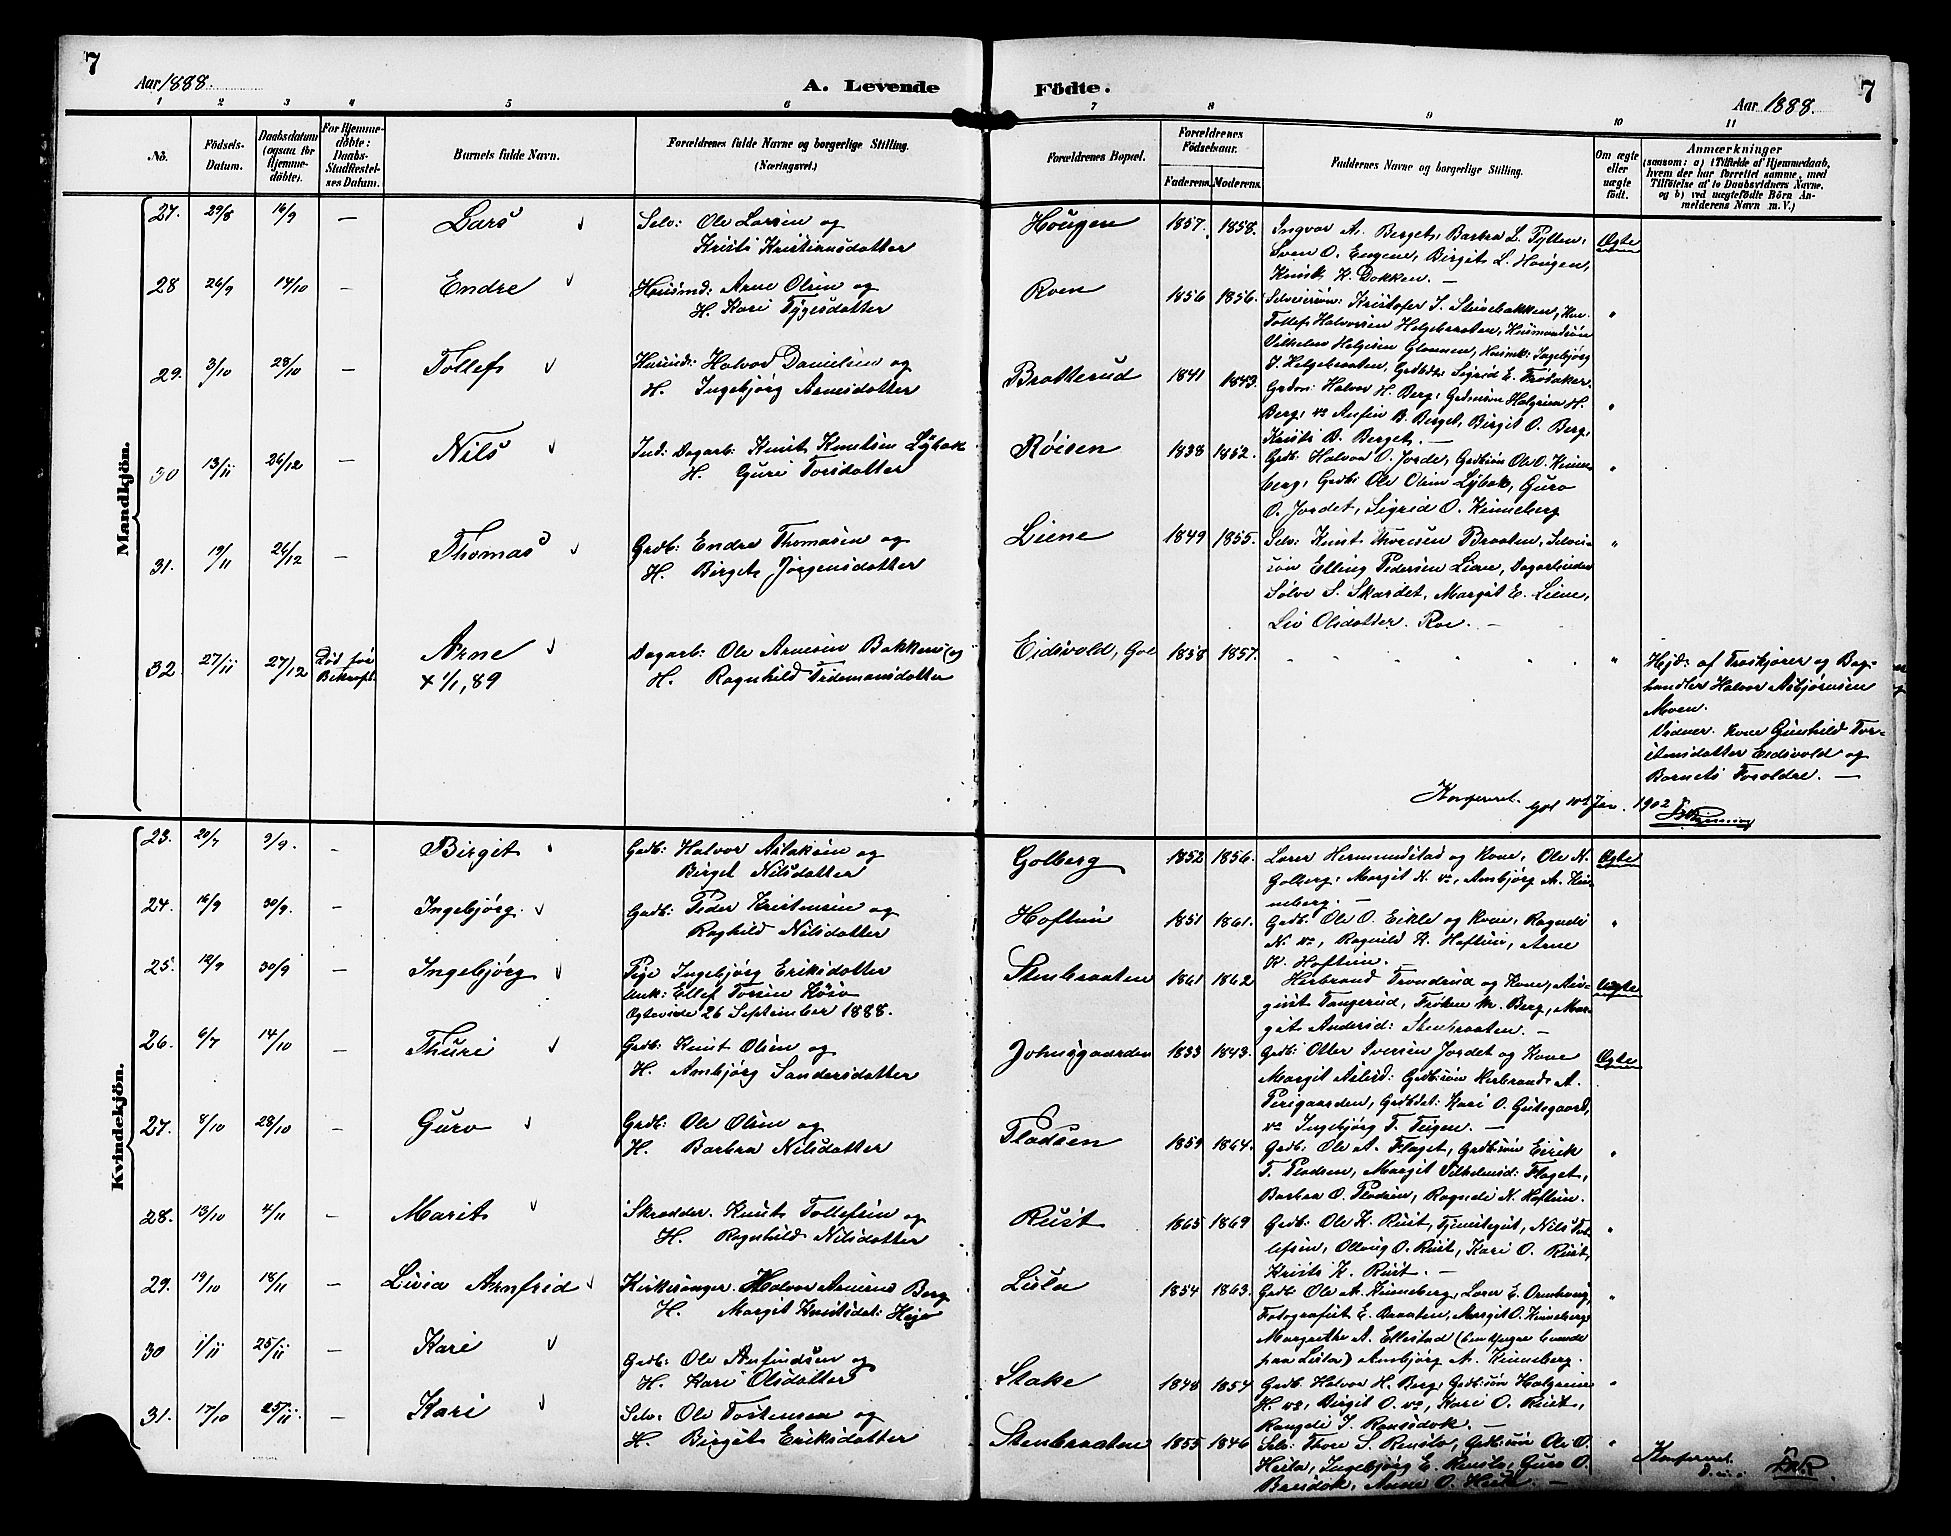 7
Aar 1888.
A. Levende
Födte.
Aar 1888.
7
1 2 3 4 5 6 7 8 9 10 11
No.
Födsels-
Datum.
Daabsdatum
(ogsaa for
Hjemme-
döbte).
For Hjemme-
döbte:
Daabs-
Stadfæstel-
ses Datum.
Barnets fulde Navn.
Forældrenes fulde Navne og borgerlige Stilling.
(Næringsvei.)
Forældrenes Bopæl.
Forældrenes
Födselsaar.
Faderens. Moderens.
Faddernes Navne og borgerlige Stilling.
Om ægte
eller
uægte
født.
Anmærkninger
(saasom: a) i Tilfælde af Hjemmedaab,
hvem der har forrettet samme, med
Tilföielse af to Daabsvidners Navne,
og b) ved uægtefödte Börn An-
melderens Navn m. V.)
Mandkjön.
27. 29/8 16/9 — Lars
Selv: Ole Larsen og
Kristi Kristiansdatter
Hougen 1857. 1858.
Ingvar A. Berget, Barbra L. Pytten,
Sven O. Eugene, Birgit L. Hougen,
K. Dokken. —
Ægte
28 26/9 14/10 — Endre
Husmd: Arne Olsen og
H. Kari Tygesdatter
Roen 1856 1856.
Selveiersøn: Kristofer S. Stinebakken,
Tollef Halvorsen Helgebraaten, Husmandssøn
Vilhelm Helgesen Glennen, Husmk: Ingebjørg
T. Helgebraaten, Sigrid E. Frøsaker.
"
29. 3/10 28/10 — Tollef
Husmd: Halvor Danielsen og
H. Ingebjørg Arnesdatter
Bratterud 1841 1843.
Halvor H. Berg, Gbrmssøn Halgrim H.
Berg, Anfin B. Berget, Birgit O. Berg,
Kristi B. Berget. —
"
30 13/11 26/12 — Nils
Ind: Dagarb: Knut Knutsen Lybak
H. Guri Torsdatter
Røisen 1838 1852.
Grdb: Halvor O. Jorde, Grdbsøn Ole O. Kinne-
berg, Grdb: Ole Olsen Lybak, Guro
O. Jordet, Sigrid O. Kinneberg
"
31. 19/11 26/12 — Thomas
Grdb: Endre Thomasen og
H. Birget Jørgensdatter
Liene 1849 1855.
Selv: Knut Thoresen Braaten, Selvei-
søn Elling Pedersen Liene, Dagarbeider
Sølve S. Skardet, Margit E. Liene,
Liv Olsdatter Roe. —
"
32. 27/11 27/12 Død før
Bekræft.
Arne
+ 1/1, 89
Dagarb: Ole Arnesen Bakken og
H. Ragnhild Tidemansdatter
Eidsvold, Gol 1858 1857.
" " " " " "
"
Hjd: af Froskjører og Bog-
handler Halvor Asbjørnsen
Moen.
Vidner. Kone Gunhild Tor-
stensdatter Eidsvold og
Barnets Forældre. —
Konfereret. Gol 10de Jan. 1902
Kvindekjön.
23. 20/7 2/9. — Birgit
Grdb: Halvor Aslaksen og
Birget Nilsdatter
Golberg 1852 1856.
Lærer Hermundstad og Kone, Ole N.
Golberg, Margit N. do, Ambjørg A. Kin-
neberg. —
Ægte
24. 16/9 30/9. — Ingebjørg
Grdb: Peder Kristensen og
Raghild Nilsdatter
Hoftun 1851 1861.
Grdb: Ole O. Eikle og Kone, Ragndi
N. do, Ragnild K. Hoftun, Arne
K. Hoftun. —
"
25. 12/9 30/9 — Ingebjørg
Pige Ingebjørg Eriksdatter
Unk: Ellef Torsen Kōsv
Ægteviede 26 September 1888.
Stenbraaten 1861 1862
Herbrand Trondrud og Kone, Au-
gust Tangerud, Frøken M. Berg, Mar-
git Andersd: Stenbraaten. —
Uægte
26. 6/7 14/10 — Thuri
Grdb: Knut Olsen og
H. Ambjørg Sandersdatter
Johnsgaarden 1833 1843.
Grdb: Otter Iversen Jordet og Kone
Margit Aslesd: Grdb:søn Herbrand A.
Perigaarden, Grdbdt: Kari O. Gutegaard,
do Ingebjørg T. Teigen. —
Ægte
27. 8/10 28/10 — Guro
Grdb: Ole Olsen og
H. Barbra Nilsdatter
Pladsen 1859 1864.
Grdb: Ole A. Flaget, Grdb:søn Eirik
T. Pladsen, Margit Vilhelmsd: Flaget,
Barbra O. Pladsen, Ragndi N. Hoftun.
"
28. 13/10 4/11 — Marit
Skrædder. Knut Tollefsen og
H. Ragnhild Nilsdatter
Rust 1865 1869
Grdb: Ole K. Rust, Nils Tol-
lefsen, Ollaug O. Rust, Kari O. Rust,
Kristi K. Rust. —
"
29. 19/10 18/11 — Livia Arnfrid
Kirkesanger. Halvor Arnesen Berg
H. Margit Knutsdt: Høge
Lisla 1854 1863.
Grdb Ole A. Kinneberg, Lærer E. Ormhaug,
Fotografist E. Braaten, Margit O. Kinneberg,
Margrethe A. Ellestad
paa Lisla) Ambjørg A. Kinneberg.
"
30 1/11 25/11 — Kari
Grdb: Ole Anfindsen og
H. Kari Olsdatter
Stake 1848 1854
Grdb. Halvor H. Berg, Grdb:søn Halgrim
H. do, Birgit O. do, Kari O. Rust,
Rangdi T. Ransdok. —
"
31. 17/10 25/11. — Kari
Selv: Ole Tostensen og
H. Birgit Eriksdatter
Stenbraaten 1855 1846
Selv: Thore S. Rensla, Grdb:søn Ole O.
Hesla, Ingebjørg E. Rensla, Guro O.
Bransdok, Anne O. Heslt. —
"
Konfereret.